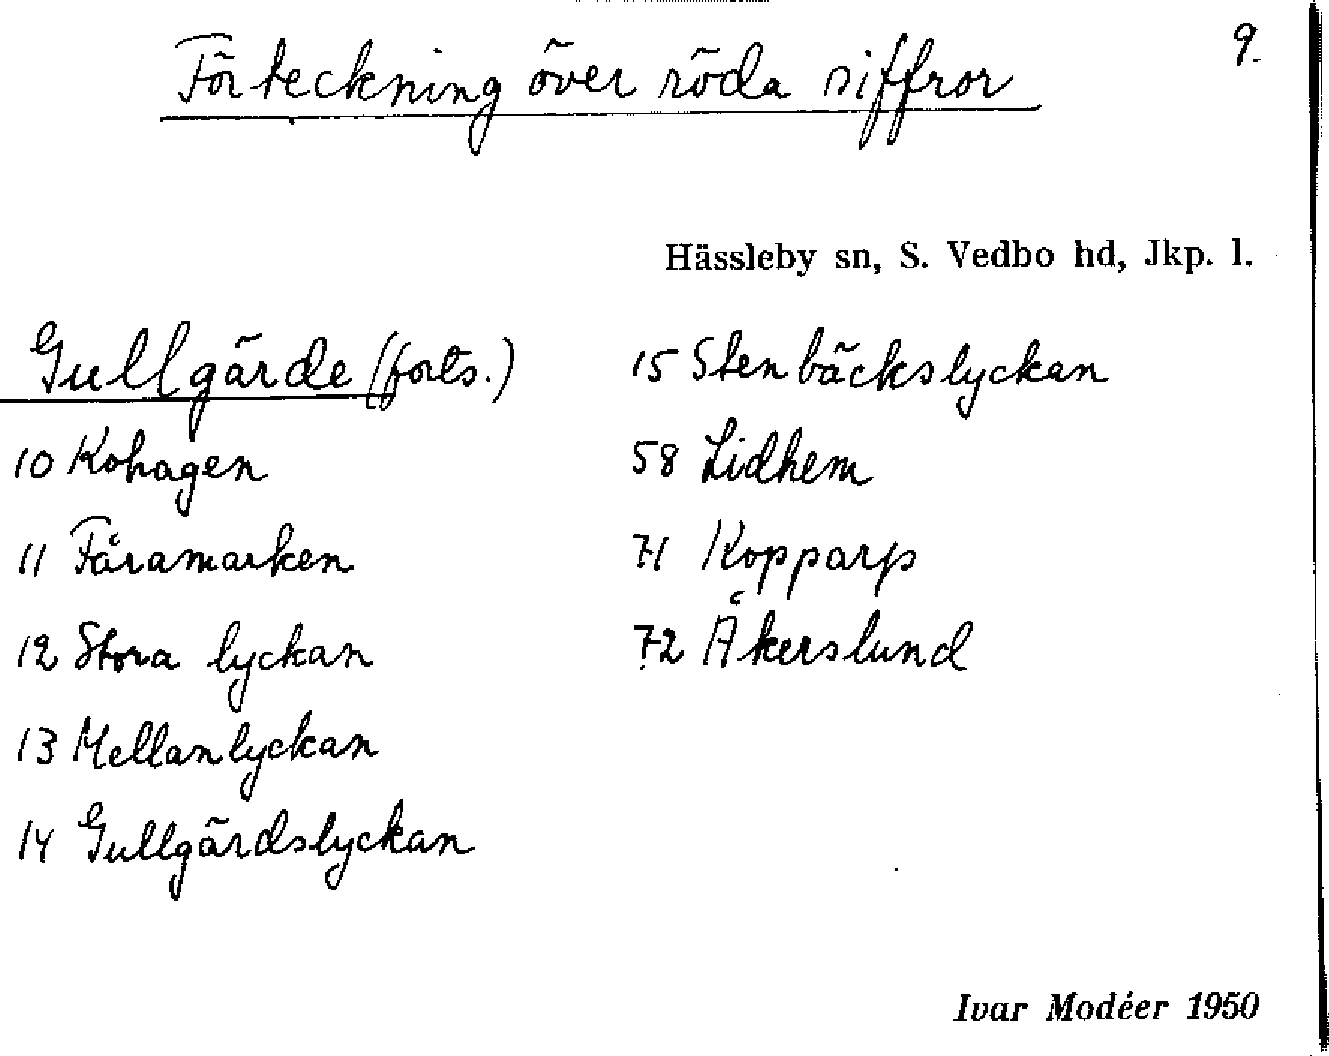 9.
Förteckning över röda siffror
Hässleby sn, S. Vedbo hd, Jkp. l.
Gullgärde (forts.)
10 Kohagen
11 Fåramarken
12 Stora lyckan
13 Mellanlyckan
14 Gullgärdslyckan
15 Stenbäckslyckan
58 Lidhem
71 Kopparp
72 Åkerslund
Ivar Modéer 1950